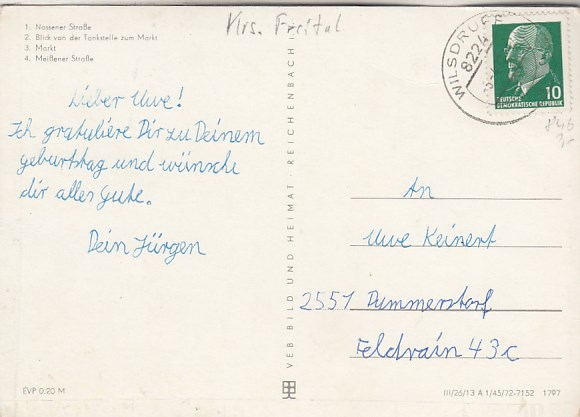 1. Nossener Straße
2. Blick von der Tankstelle zum Markt
3. Markt
4. Meißener Straße
Krs. Freital
WILSDRUFF
8224
DEUTSCHE
DEMOKRATISCHE REPUBLIK
10
Lieber Uwe!
Ich gratuliere Dir zu Deinem
geburtstag und wünsche
dir alles Gute.
Dein Jürgen
VEB BILD UND HEIMAT · REICHENBACH
An
Uwe Keinert
2551 Dummerstorf
Feldrain 43c
EVP 0.20 M
III/26/13 A 1/45/72-7152 1797